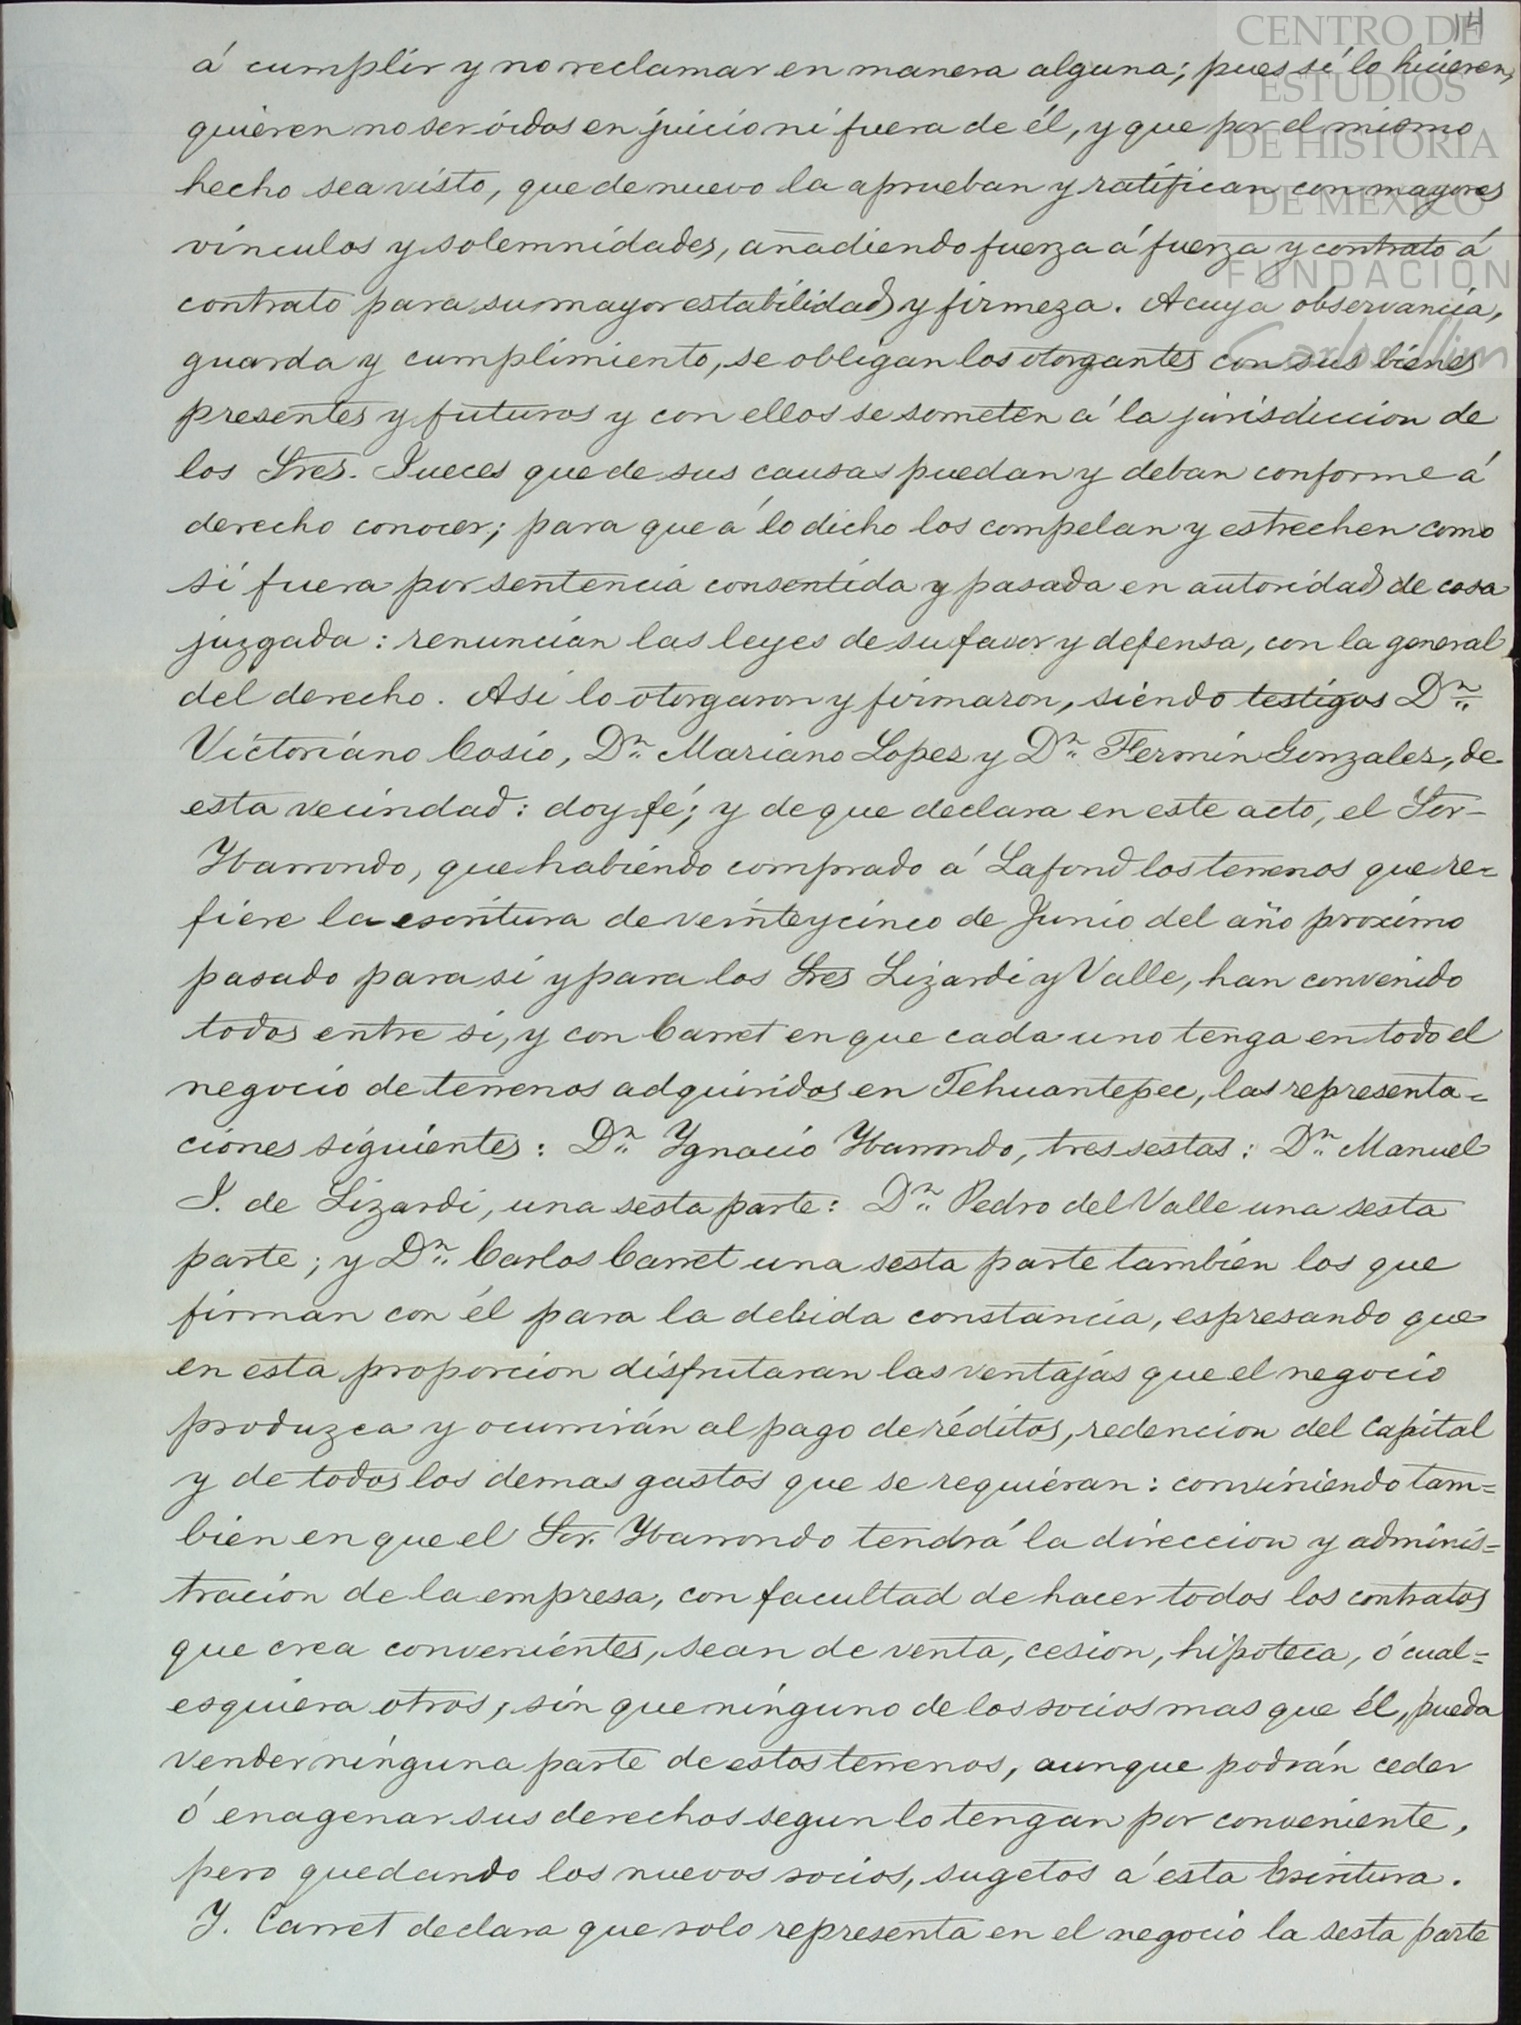 14
CENTRO DE
ESTUDIOS
DE HISTORIA
DE MEXICO
FUNDACIÓN
Carlos Slim
á cumplir y no reclamar en manera alguna; pues si lo hicieren,
quieren no ser óidos en juicio ni fuera de él, y que por el mismo
hecho sea visto, que de nuevo la aprueban y ratifican con mayores
vínculos y solemnidades, añadiendo fuerza á fuerza y contrato á
contrato para su mayor estabilidad y firmeza. A cuya observancia,
guarda y cumplimiento, se obligan los otorgantes con sus bienes
presentes y futuros y con ellos se someten á la jurisdiccion de
los Sres. Jueces que de sus causas puedan y deban conforme á
derecho conocer; para que á lo dicho los compelan y estrechen como
si fuera por sentencia consentida y pasada en autoridad de cosa
juzgada: renuncian las leyes de su favor y defensa, con la general
del derecho. Asi lo otorgaron y firmaron, siendo testigos Dn.
Victoriano Cosio, Dn. Mariano Lopez y Dn. Fermin Gonzalez, de
esta vecindad: doy fé; y de que declara en este acto, el Sor
Ybarrondo, que habiendo comprado á Lafond los terrenos que re=
fiere la escritura de veinteycinco de Junio del año proximo
pasado para si y para los Sres Lizardi y Valle, han convenido
todos entre si, y con Carret en que cada uno tenga en todo el
negocio de terrenos adquiridos en Tehuantepec, las representa=
ciones siguientes: Dn. Ygnacio Ybarrondo, tres sestas: Dn. Manuel
J. de Lizardi, una sesta parte: Dn. Pedro del Valle una sesta
parte; y Dn. Carlos Carret una sesta parte tambien los que
firman con él para la debida constancia, espresando que
en esta proporcion disfrutaran las ventajas que el negocio
produzca y ocurrirán al pago de réditos, redencion del capital
y de todos los demas gastos que se requieran: conviniendo tam=
bien en que el Sor. Ybarrondo tendrá la direccion y adminis=
tracion de la empresa, con facultad de hacer todos los contratos
que crea convenientes, sean de venta, cesion, hipoteca, ó cual=
esquiera otros, sin que ninguno de los socios mas que él, pueda
vender ninguna parte de estos terrenos, aunque podrán ceder
ó enagenar sus derechos segun lo tengan por conveniente,
pero quedando los nuevos socios, sugetos á esta Escritura.
Y. Carret declara que solo representa en el negocio la sesta parte